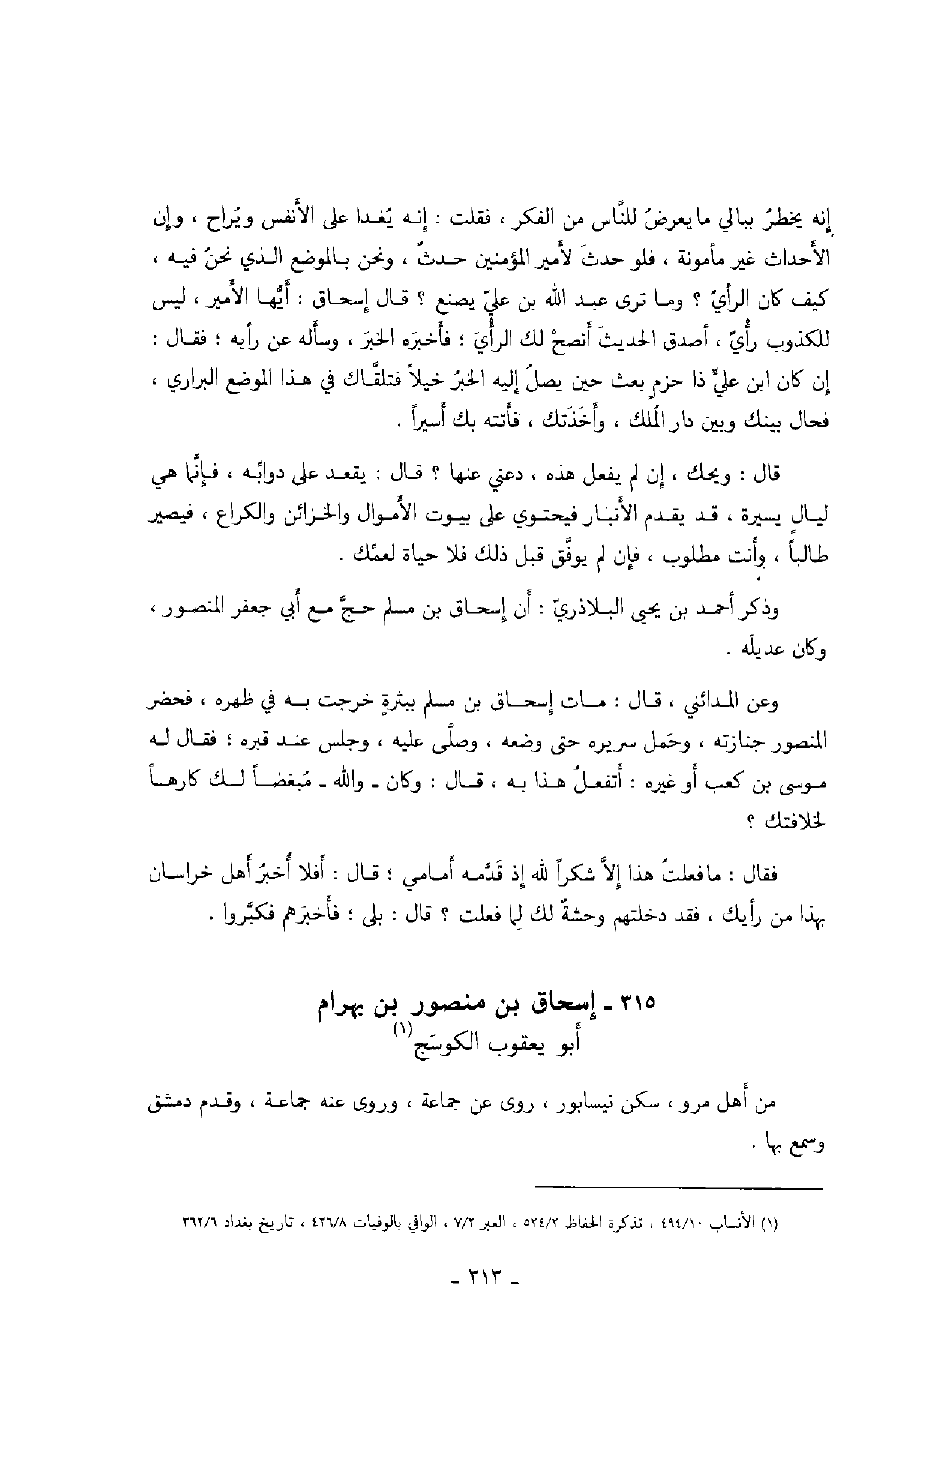 إنه يخطرُ ببالي ما يعرضُ للنَّاس من الفكر ، فقلت : إنـه يُغـدا على الأنفس ويُراح ، وإن
الأحداث غير مأمونة ، فلو حدثَ لأمير المؤمنين حـدثٌ ، ونحن بـالموضع الـذي نحنُ فيـه ،
كيف كان الرأيُ ؟ ومـا ترى عبـد الله بن عليّ يصنع ؟ قـال إسحـاق : أيُّهـا الأمير ، ليس
للكذوب رأيٌ ، أصدق الحديثَ أنصحْ لك الرأيَ ؛ فأخبَره الخبرَ ، وسأله عن رأيه ؛ فقـال :
إن كان ابن عليٍّ ذا حزمٍ بعث حين يصلُ إليه الخبرُ خيلاً فتلقَّاك في هـذا الموضع البراري ،
فحال بينك وبين دار المُلك ، وأخَذَتك ، فأتته بك أسيراً .
قال : ويحك ، إن لم يفعل هذه ، دعني عنها ؟ قـال : يقعـد على دوابِّـه ، فـإنَّما هي
ليـالٍ يسيرة ، قـد يقدم الأنبـار فيحتـوي على بيـوت الأمـوال والخـزائن والكراع ، فيصير
طالباً ، وأنت مطلوب ، فإن لم يوفَّق قبل ذلك فلا حياة لعمِّك .
وذكر أحمـد بن يحيى البـلاذريّ : أن إسحـاق بن مسلم حـجَّ مـع أبي جعفر المنصـور ،
وكان عديله .
وعن المـدائني ، قـال : مـات إسحـاق بن مسلم ببثرةٍ خرجت بـه في ظهره ، فحضر
المنصور جنازته ، وحَمل سريره حتى وضعه ، وصلَّى عليه ، وجلس عنـد قبره ؛ فقـال لـه
مـوسى بن كعب أو غيره : أتفعـلُ هـذا بـه ، قـال : وكان ـ والله ـ مُبغضـاً لـك كارهـاً
لخلافتك ؟
فقال : ما فعلتُ هذا إلاَّ شكراً لله إذ قَدَّمـه أمـامي ؛ قـال : أفلا أُخبرُ أهل خراسـان
بهذا من رأيك ، فقد دخلتهم وحشةٌ لك لِما فعلت ؟ قال : بلى ؛ فأخبَرهم فكبَّروا .
٣١٥ ـ إسحاق بن منصور بن بهرام
أبو يعقوب الكوسَج(١)
من أهل مرو ، سكن نيسابور ، روى عن جماعة ، وروى عنه جماعـة ، وقـدم دمشق
وسمع بها .
(١) الأنسـاب ٤٩٤/١٠ ، تذكرة الحفاظ ٥٢٤/٢ ، العبر ٧/٢ ، الوافي بالوفيات ٤٢٦/٨ ، تاريخ بغداد ٣٦٢/٦
ـ ٣١٣ ـ